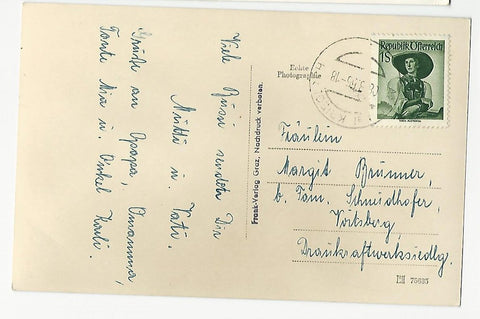 Viele Grüsse sendet Dir
Mutti u. Vati.
Grüße an Opapa, Omamma,
Tante Mia u. Onkel Karli.
Frank-Verlag Graz, Nachdruck verboten.
Echte
Photographie
Republik Österreich
1S
Fräulein
Margit Brünner,
b. Fam. Schmidhofer,
Voitsberg,
Draukraftwerksiedlg.
75685